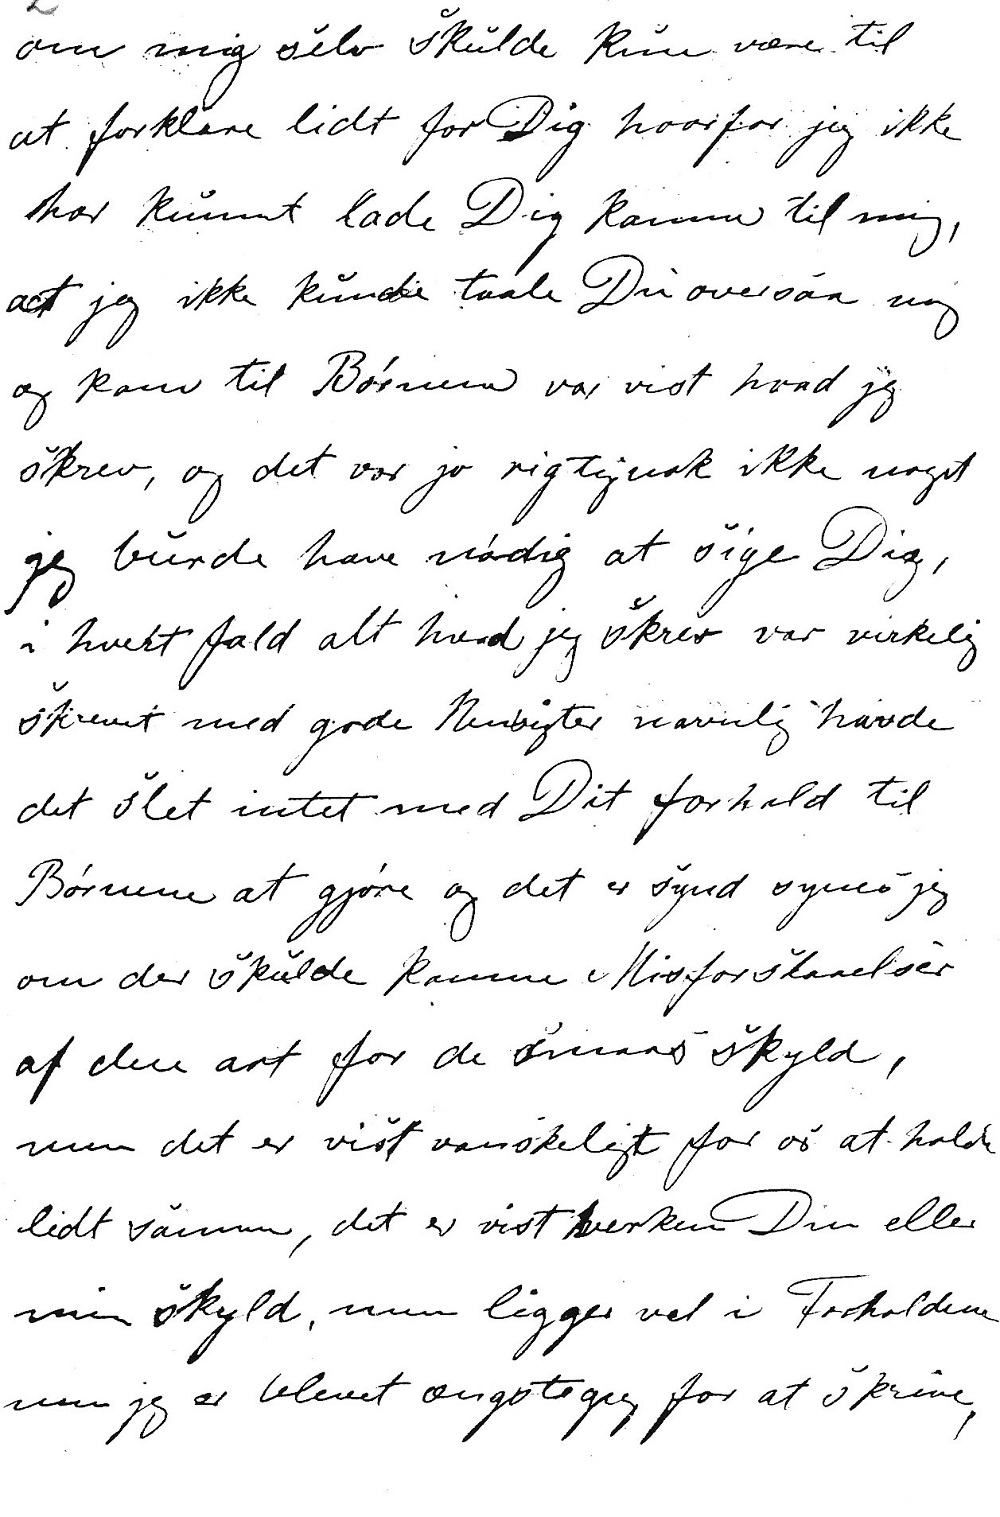 2
om mig selv skulde kun være til
at forklare lidt for Dig hvorfor jeg ikke
har kunnet lade Dig komme til mig,
at jeg ikke kunde taale Du oversaa mig
og kom til Børnene var vist hvad jeg
skrev, og det var jo rigtignok ikke noget
jeg burde have nödig at sige Dig,
i hvert fald alt hvad jeg skrev var virkelig
skrevet med gode Hensigter navnlig havde
det slet intet med Dit forhold til
Børnene at gjøre og det er synd synes jeg
om der skulde komme Misforstaaelser
af den art for de smaas skyld,
men det er vist vanskeligt for os at holde
lidt sammen, det er vist hverken Din eller
min skyld, men ligger vel i Forholdene
men jeg er blevet for at skrive,